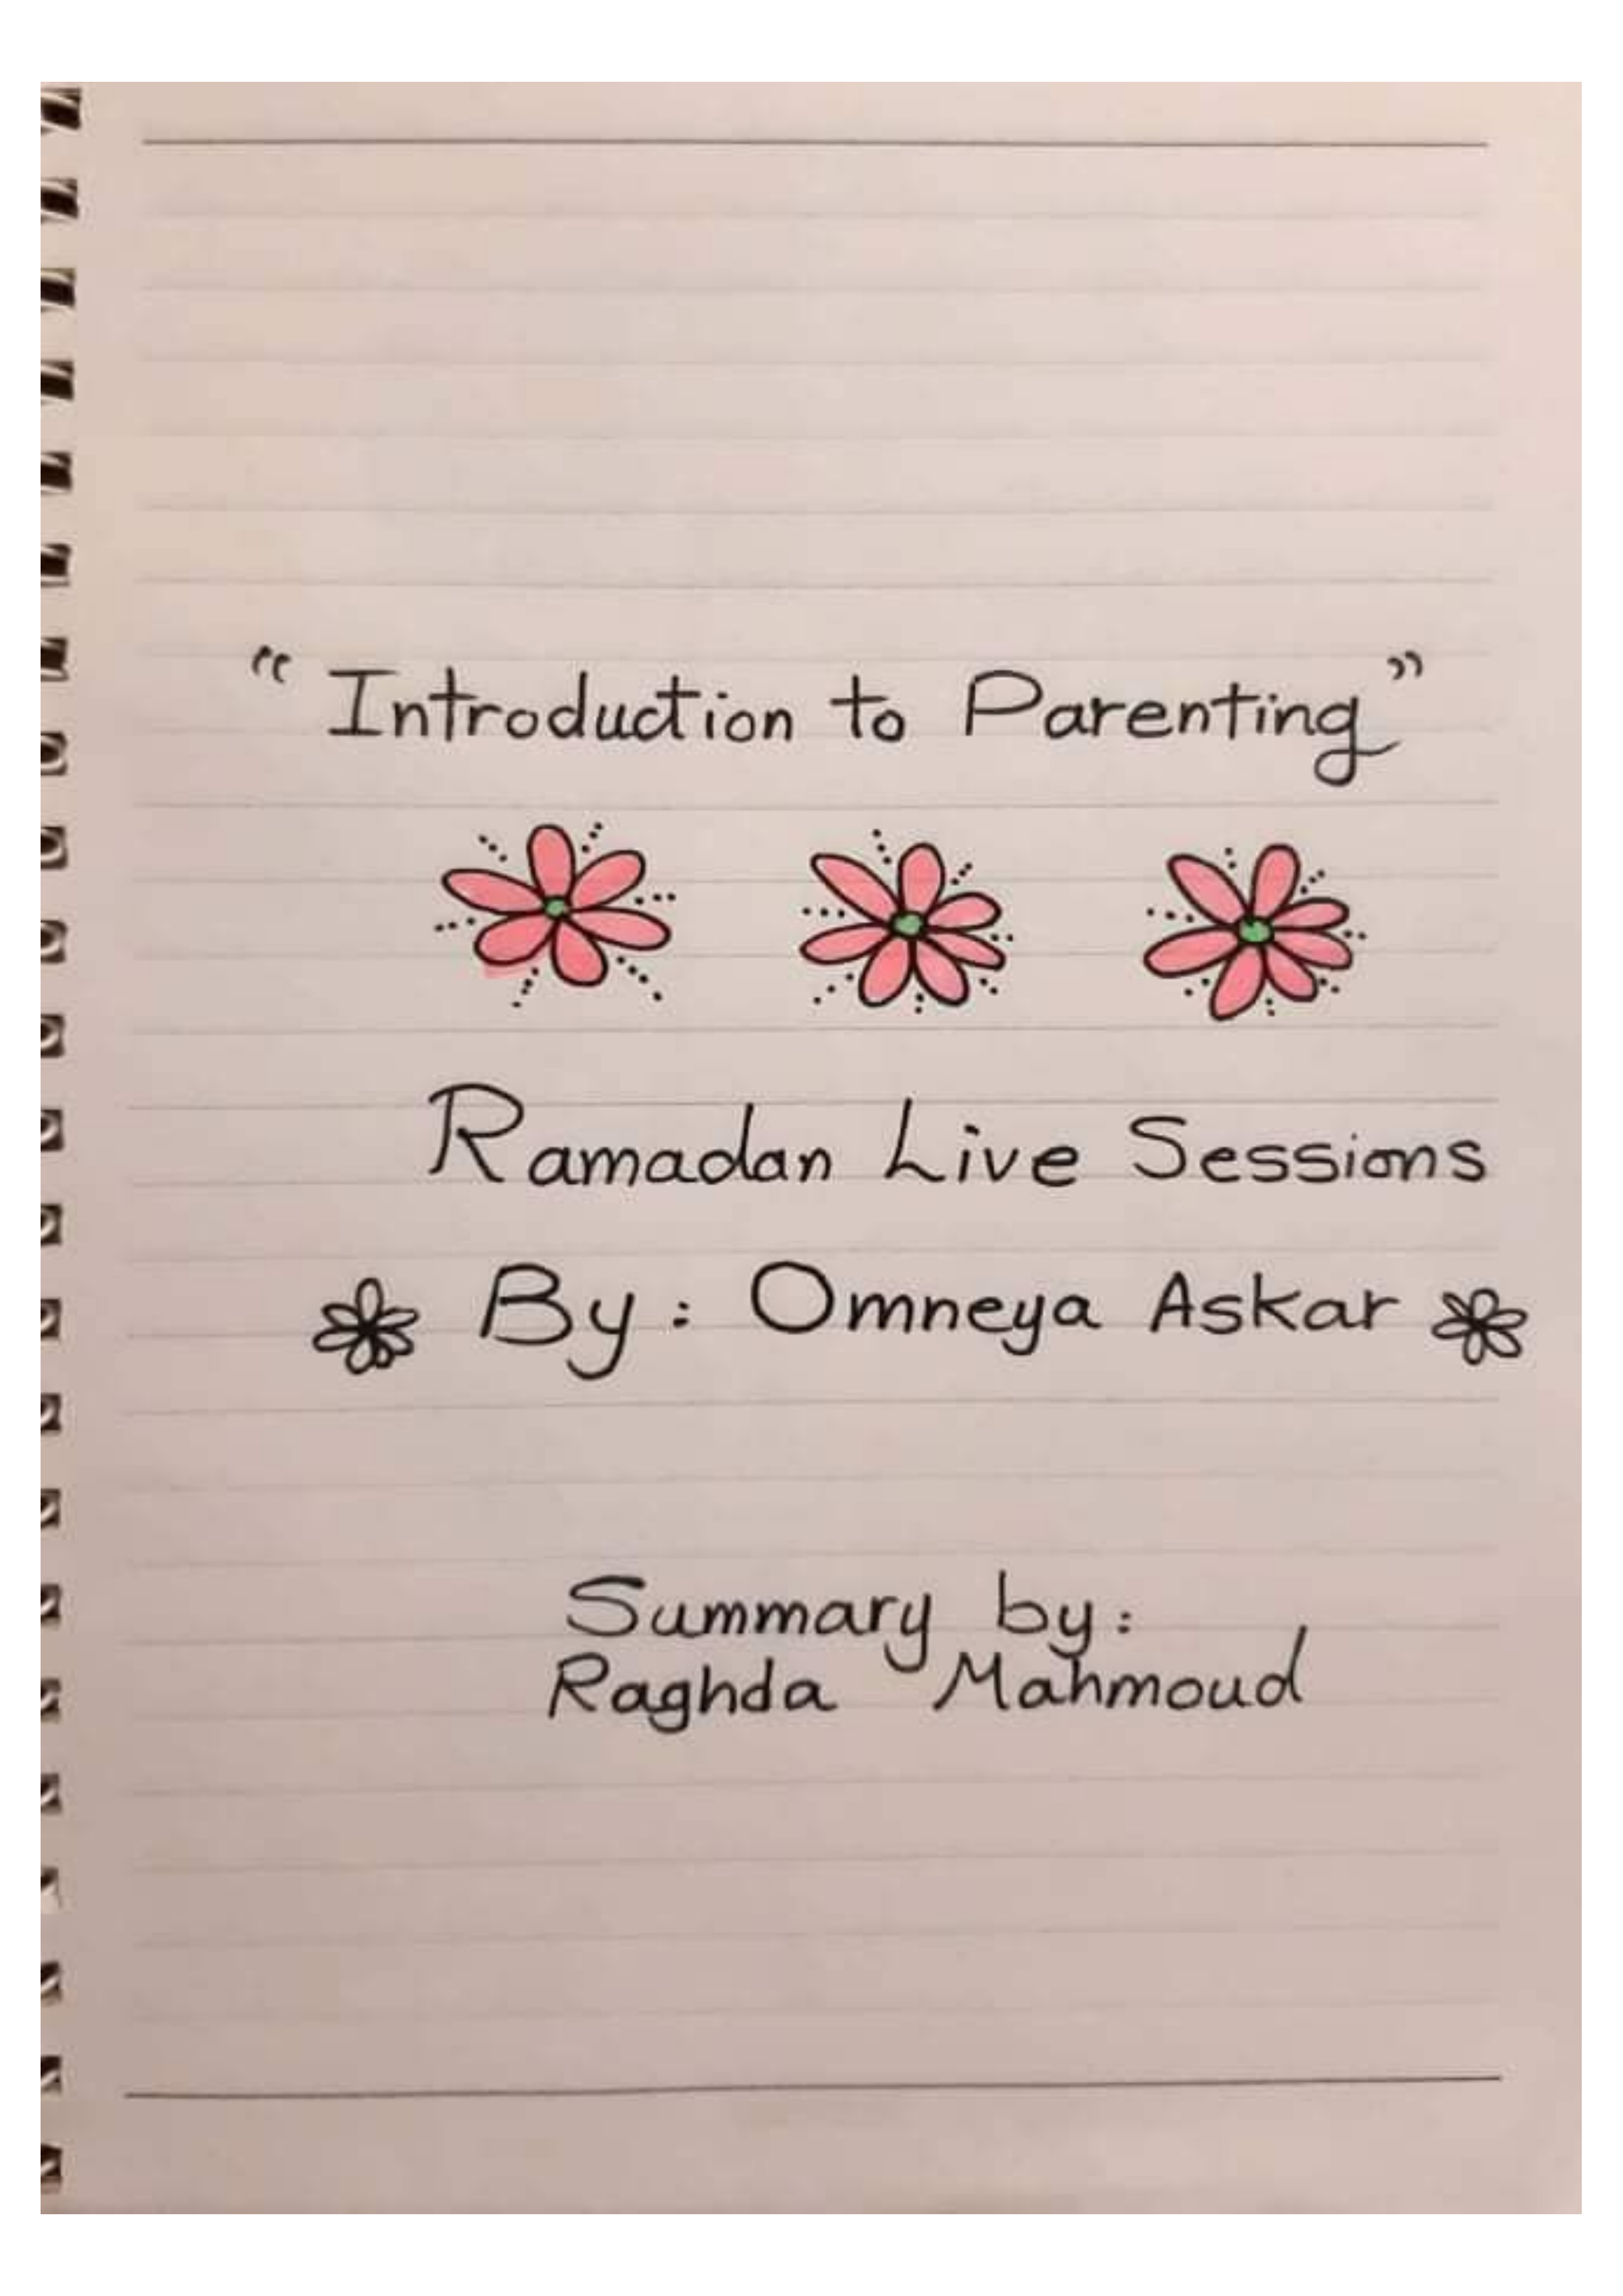 "Introduction to Parenting"
Ramadan Live Sessions
By: Omneya Askar
Summary by:
Raghda Mahmoud